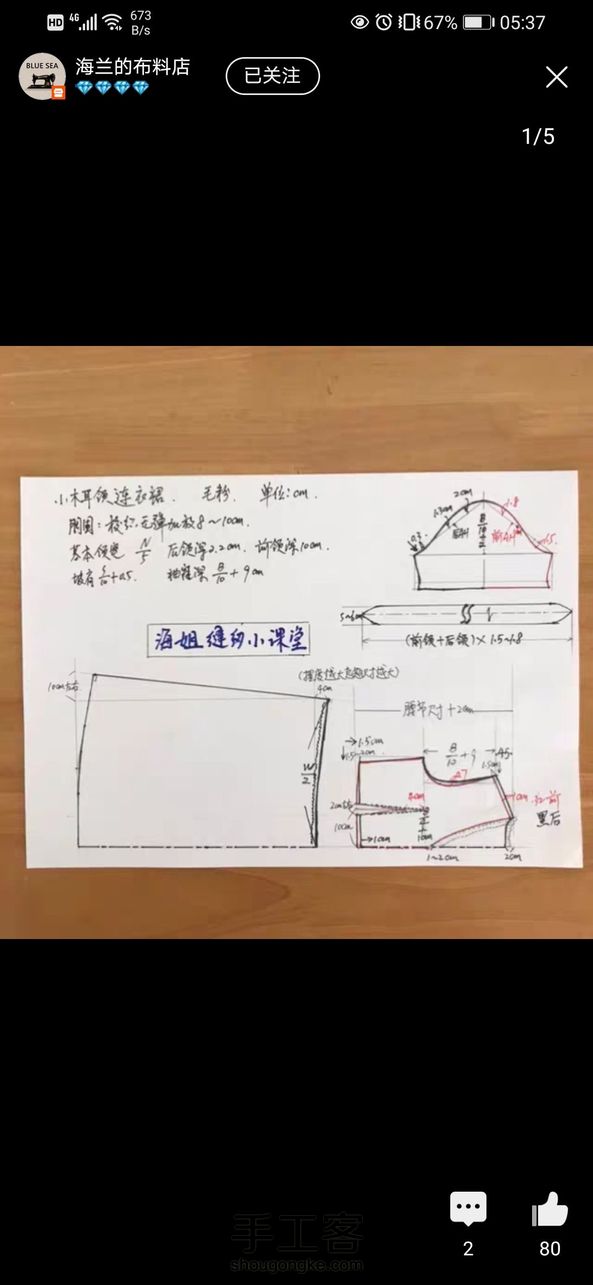 HD 4G 673 B/s 67% 05:37
BLUE SEA
海兰的布料店
已关注
1/5
小木耳领连衣裙. 毛粉. 单位:cm.
胸围:梭织无弹加放8~10cm.
基本领宽 N/5 后领深2.2cm. 前领深10cm.
坡肩 S/10+0.5. 袖窿深 B/10+9cm
海姐缝纫小课堂
2cm
1.8
B/10+2
前AH
1.5.
0.3
5~6cm
(前领+后领)×1.5~1.8
10cm左右
(摆度越大起翘尺寸越大)
4cm
W/2
腰节尺寸+2cm
1.5cm
1.5~2cm
B/10+9
4.5
1.5cm
1cm
红前
黑后
2cm
10cm
1cm
1~2cm
2cm
手工客
shougongke.com
2
80